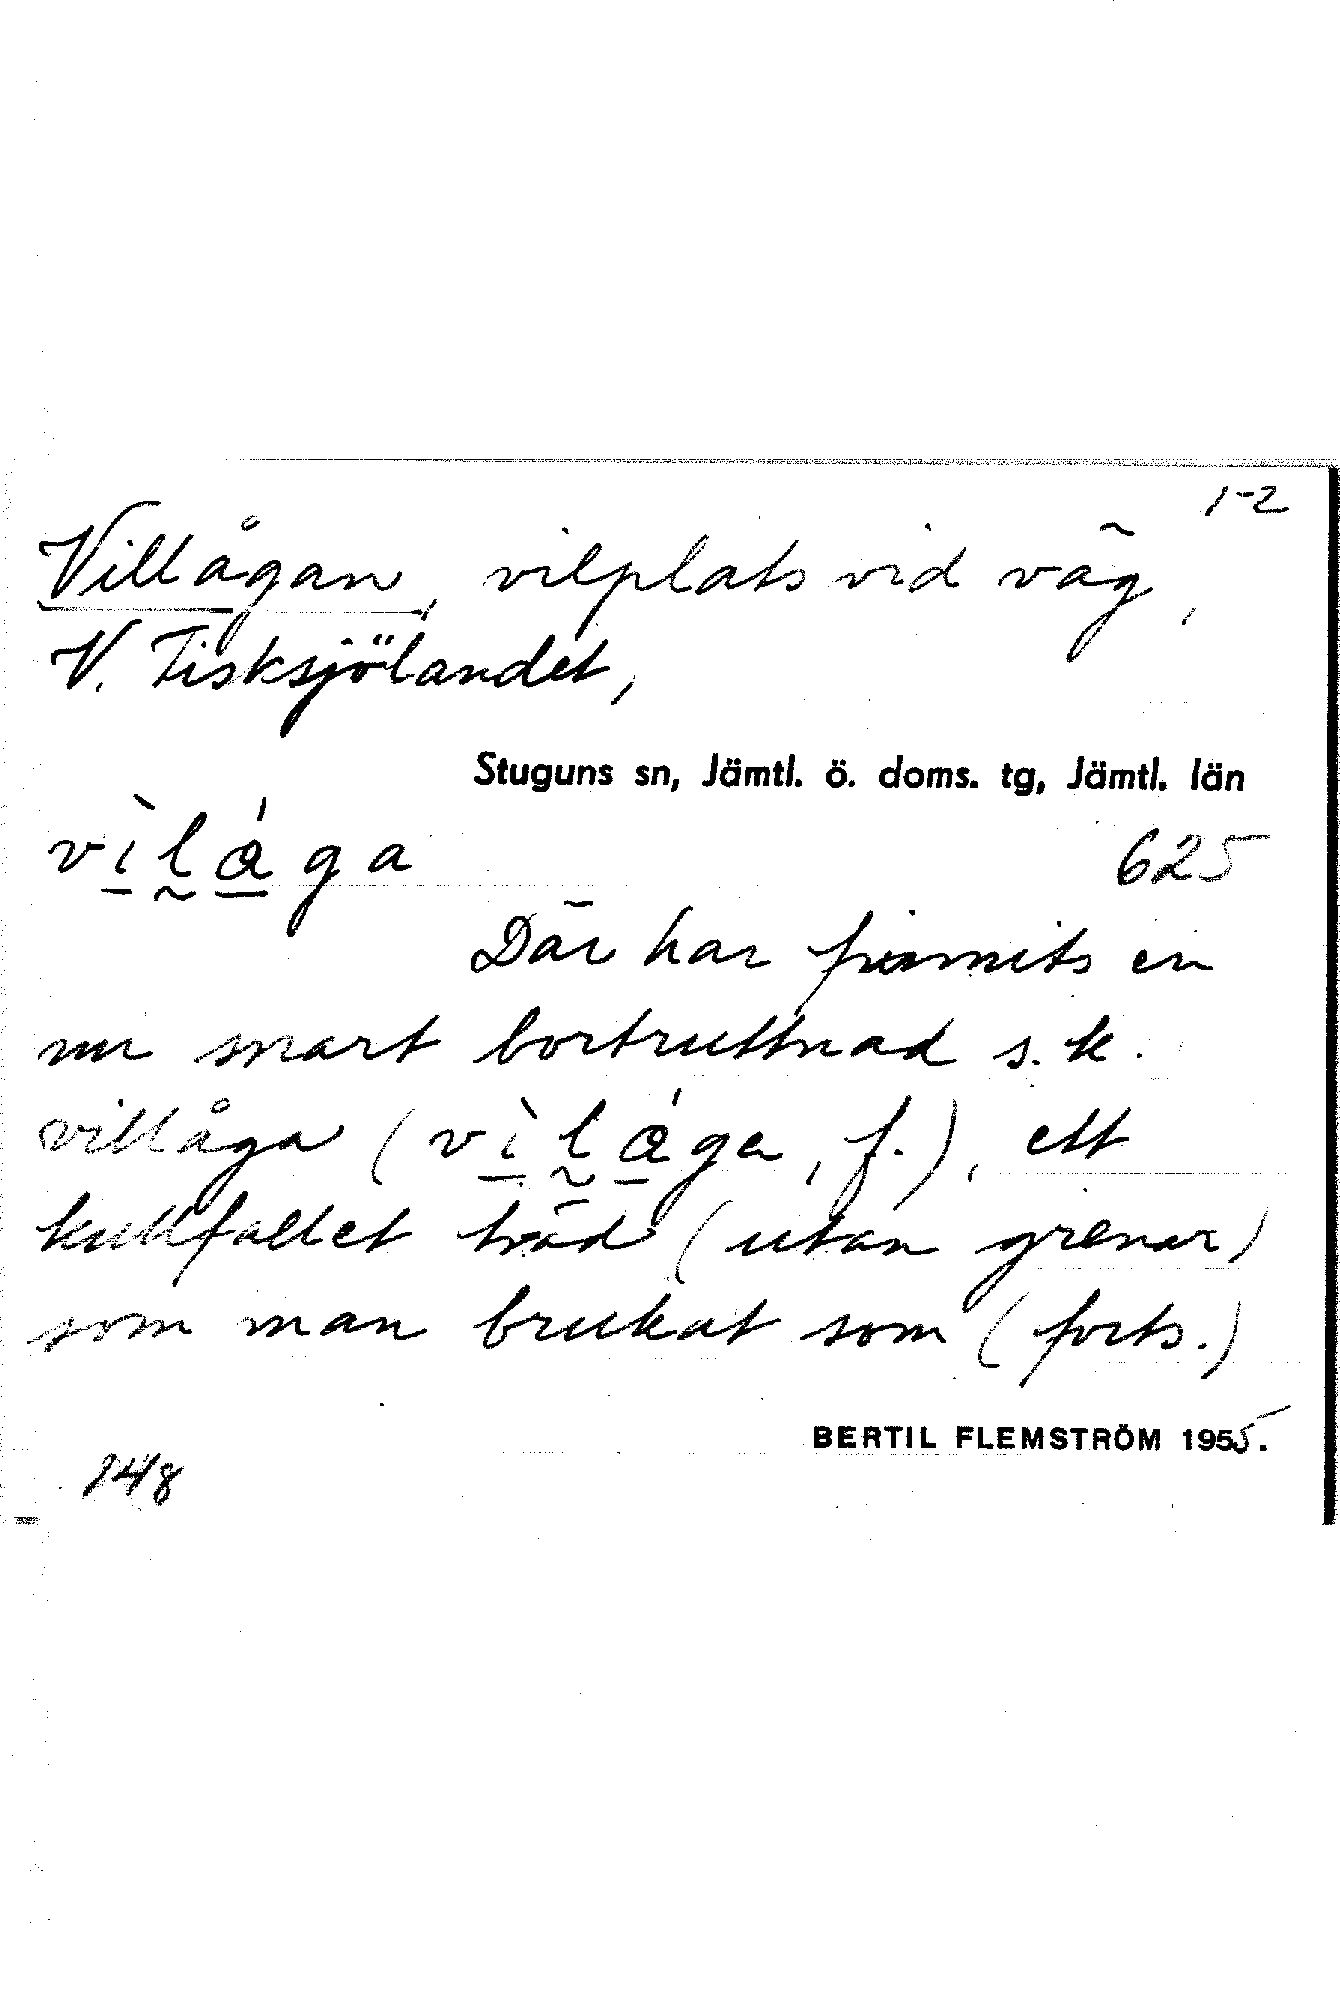 1-2
Villågan, vilplats vid väg,
V. Fisksjölandet,
Stuguns sn, Jämtl. ö. doms. tg, Jämtl. län
vìlåǵa
625
Där har funnits en
nu snart bortruttnad s.k.
villåga (vìlåǵa, f.), ett
kullfallet träd (utan grenar)
som man brukat som (forts.)
BERTIL FLEMSTRÖM 1955.
148